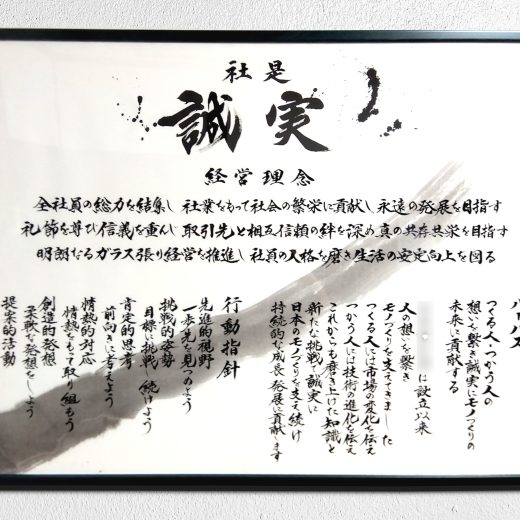 社是
誠実
経営理念
全社員の総力を結集し 社業をもって社会の繁栄に貢献し 永遠の発展を目指す
礼節を尊び信義を重んじ 取引先と相互信頼の絆を深め 真の共存共栄を目指す
明朗なるガラス張り経営を推進し 社員の人格を磨き生活の安定向上を図る
パーパス
つくる人・つかう人の
想いを繋ぎ誠実にモノづくりの
未来に貢献する
に設立以来
人の想いを繋ぎ
モノづくりを支えてきました
つくる人には市場の変化を伝え
つかう人には技術の進化を伝え
これからも磨き上げた知識と
新たな挑戦で誠実に
日本のモノづくりを支え続け
持続的な成長発展に貢献します
行動指針
先進的視野
一歩先を見つめよう
挑戦的姿勢
目標へ挑戦し続けよう
肯定的思考
前向きに考えよう
情熱的対応
情熱をもって取り組もう
創造的発想
柔軟な発想をしよう
提案的活動